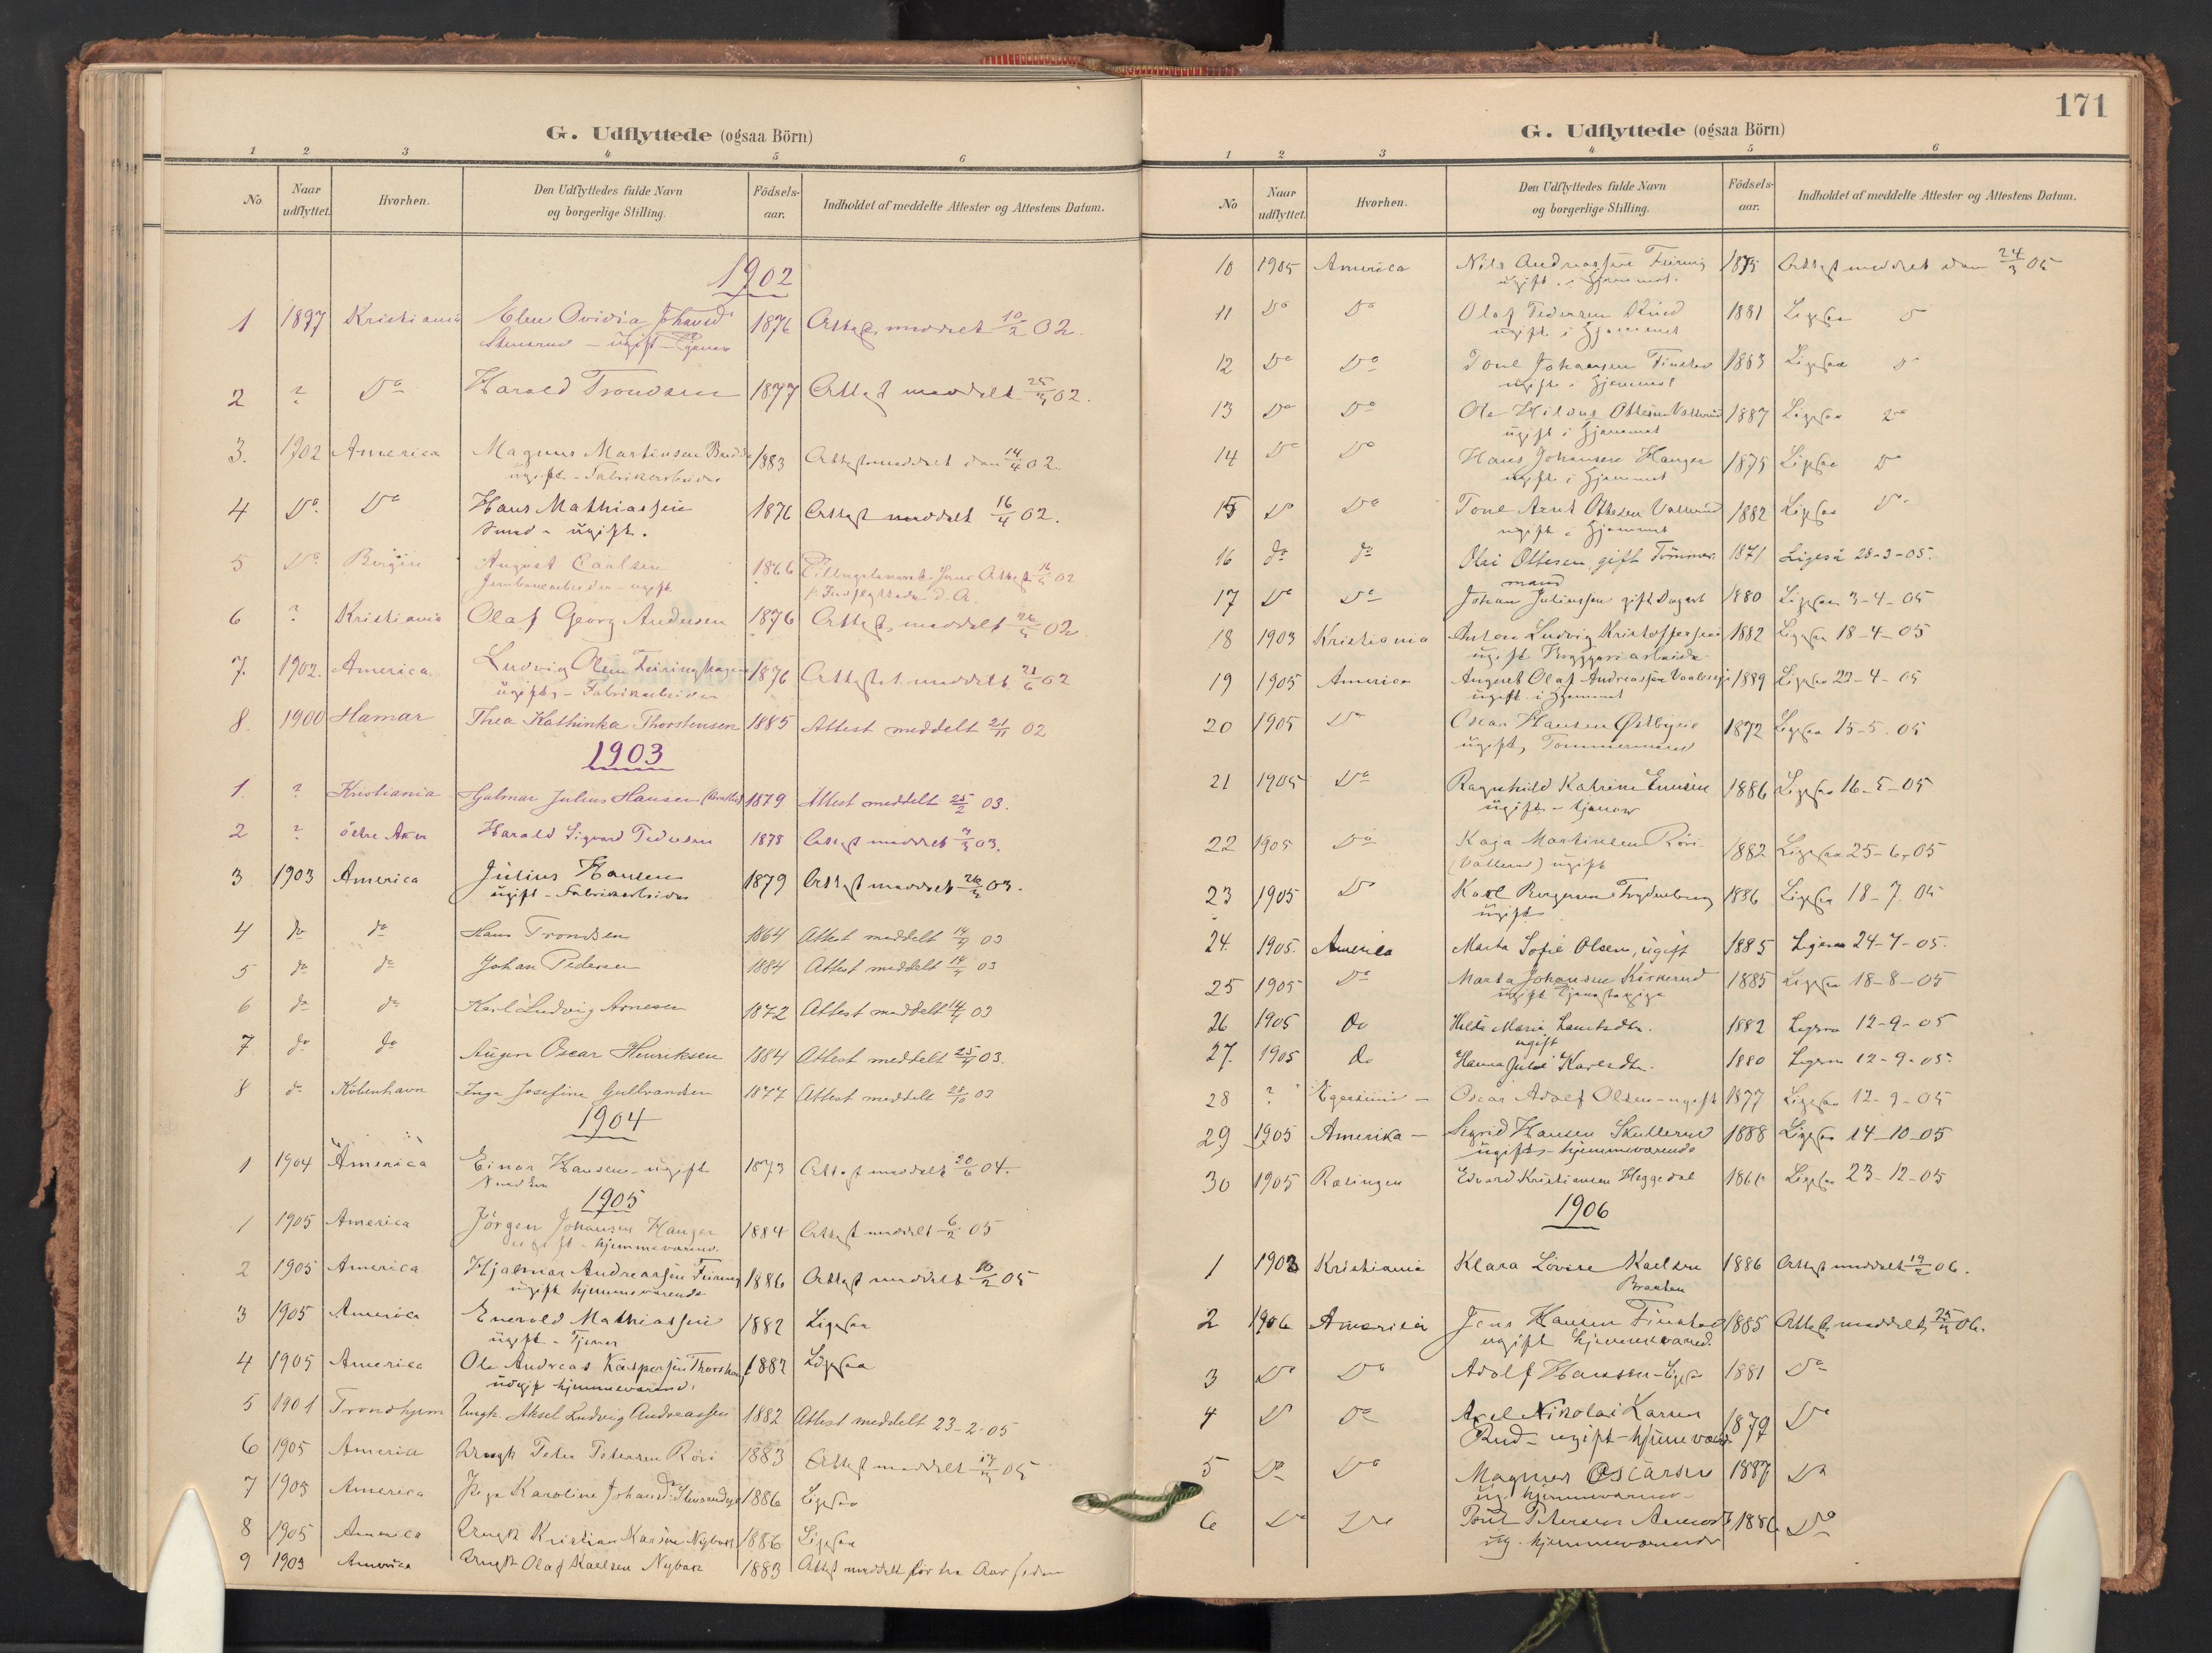 G. Udflyttede (ogsaa Börn)
1 2 3 4 5 6
No Naar udflyttet. Hvorhen. Den Udflyttedes fulde Navn og borgerlige Stilling. Födsels-aar. Indholdet af meddelte Attester og Attestens Datum.
1902
1 1897 Kristiania Elen Ovidia 1876 Attest meddelt 10/2 02.
ugift
2 ? Do Harald Trondsen 1877 Attest meddelt 02.
3. 1902 America Magnus Martinsen 1883 Attest meddelt den 14/4 02.
ugift - Fabrikarbeider
4 Do Do Hans Mathiassen 1876 Attest meddelt 16/4 02.
Sund - ugift.
5 Do Bergen August Carlsen 1866 Attest 02
Jernbanearbeider - ugift
6 ? Kristiania Olaf Georg Andersen 1876 Attest meddelt 02
7. 1902. America Ludvig Olsen 1876 Attest meddelt 21/6 02
ugift - Fabrikarbeider
8. 1900 Hamar Thea Kathinka Thorstensen 1885 Attest meddelt 21/11 02
1903
1. ? Kristiania Hjalmar Julius Hansen 1879 Attest meddelt 25/2 03.
2 ? östre Aker Harald Sigvard Pedersen 1878 Attest meddelt 03.
3 1903 America Julius Hansen 1879 Attest meddelt 03.
ugift - Fabrikarbeider
4 do do Hans Trondsen 1864 Attest meddelt 03
5 do do Johan Pedersen 1884 Attest meddelt 03
6 do do Karl Ludvig Arnesen 1872 Attest meddelt 03
7 do do August Oscar Henriksen 1884 Attest meddelt 03.
8 do Köbenhavn Inga Josefine Gulbrandsen 1877 Attest meddelt 28/10 03
1904
1 1904 America Einar Hansen - ugift 1873 Attest meddelt 20/6 04.
1905
1 1905 America Jörgen Johansen Hanger 1884 Attest meddelt 6/2 05
ugift - hjemmeværend.
2 1905 America Hjalmar Andreassen Feiring 1886 Attest meddelt 16/2 05
ugift hjemmeværende
3 1905 America Enevold Mathiassen 1882 Ligesaa
ugift - Tjener
4 1905 America Ole Andreas Kaspersen 1882 Ligesaa
ugift hjemmeværend.
5 1901 Trondhjem Ungk. Aksel Ludvig Andreassen 1882 Attest meddelt 23-2-05
6 1905 America Ungk Peter Petersen Röri 1883 Attest meddelt 05
7 1905 America Karoline 1886 Ligesaa
8 1905 America Ungk Kristian Karlsen Nybak 1886 Ligesaa
9 1903 America Ungk Olaf Karlsen Nybak 1883 Attest meddelt for to Aar siden
171
G. Udflyttede (ogsaa Börn)
1 2 3 4 5 6
No Naar udflyttet. Hvorhen. Den Udflyttedes fulde Navn og borgerlige Stilling. Födsels-aar. Indholdet af meddelte Attester og Attestens Datum.
10 1905 America Nils Andreassen Feiring 1875 Attest meddelt den 24/3 05
ugift i Hjemmet.
11 Do Do Olaf Pedersen Rud 1881 Ligesaa D
ugift i Hjemmet
12 Do Do Johansen Finstad 1863 Ligesaa D
ugift i Hjemmet
13 Do Do Ole Hildus Ottesen Vallerud 1887 Ligesaa Do
ugift i Hjemmet
14 Do Do Hans Johansen Hanger 1875 Ligesaa Do
ugift i Hjemmet
15 Do Do Arnt Ottesen Vallerud 1882 Ligesaa Do
ugift i Hjemmet
16 do do Ottesen, gift Tömmer- 1871 Ligesá 28-3-05.
mand
17 Do Do Johan Juliussen gift 1880 Ligesaa 3-4-05
18 1903 Kristiania Anton Ludvig Kristoffersen 1882 Ligesaa 18-4-05
ugift Bryggeriarbeider
19 1905 America August Olaf Andreassen 1889 Ligesaa 22-4-05
ugift i Hjemmet
20 1905 Do Oscar Hansen Østbye 1872 Ligesaa 15-5.05
ugift, Tömmermand
21 1905 Do Ragnhild Katrine 1886 Ligesaa 16-5-05
ugift - tjener
22 1905 Do Kaja Martinsen Röri 1882 Ligesaa 25-6-05
(Vallerud) ugift
23 1905 Do Karl Borgersen Frydenberg 1886 Ligesaa 18-7 05
ugift
24. 1905. America Marta Sofie Olsen, ugift 1885 Ligesaa 24-7-05.
25 1905 Do Marta Johansen 1885 Ligesaa 18-8-05
ugift
26 1905 do Hilda Marie 1882 Ligesaa 12-9-05
ugift
27. 1905 do Hanna Julie Karlsdtr. 1880 Ligesaa 12-9-05.
28 ? Oscar Adolf Olsen - ugift 1877 Ligesaa 12-9-05
29 1905 Amerika - Sigrid Hansen Skullerud 1888 Ligesaa 14-10-05
ugift - hjemmeværende
30 1905 Edvard Kristiansen Heggedal Ligesaa 23-12-05
1906
1 1903 Kristiania Klara Lövise Karlsen 1886 Attest meddelt 19/2 06.
Braaten
2 1906 America Jens Hansen Finstad 1885 Attest meddelt 06.
ugift hjemmeværend.
3 Do Do Adolf Hanssen 1881 Do
4 D Do Axel Nikolai Larsen 1879 Do
Rud - ugift - hjemmevær
5 Do Do Magnus Oscarsen 1887 Do
ug. hjemmeværend
6 Do Do Petersen 1886 Do
ug. hjemmeværende